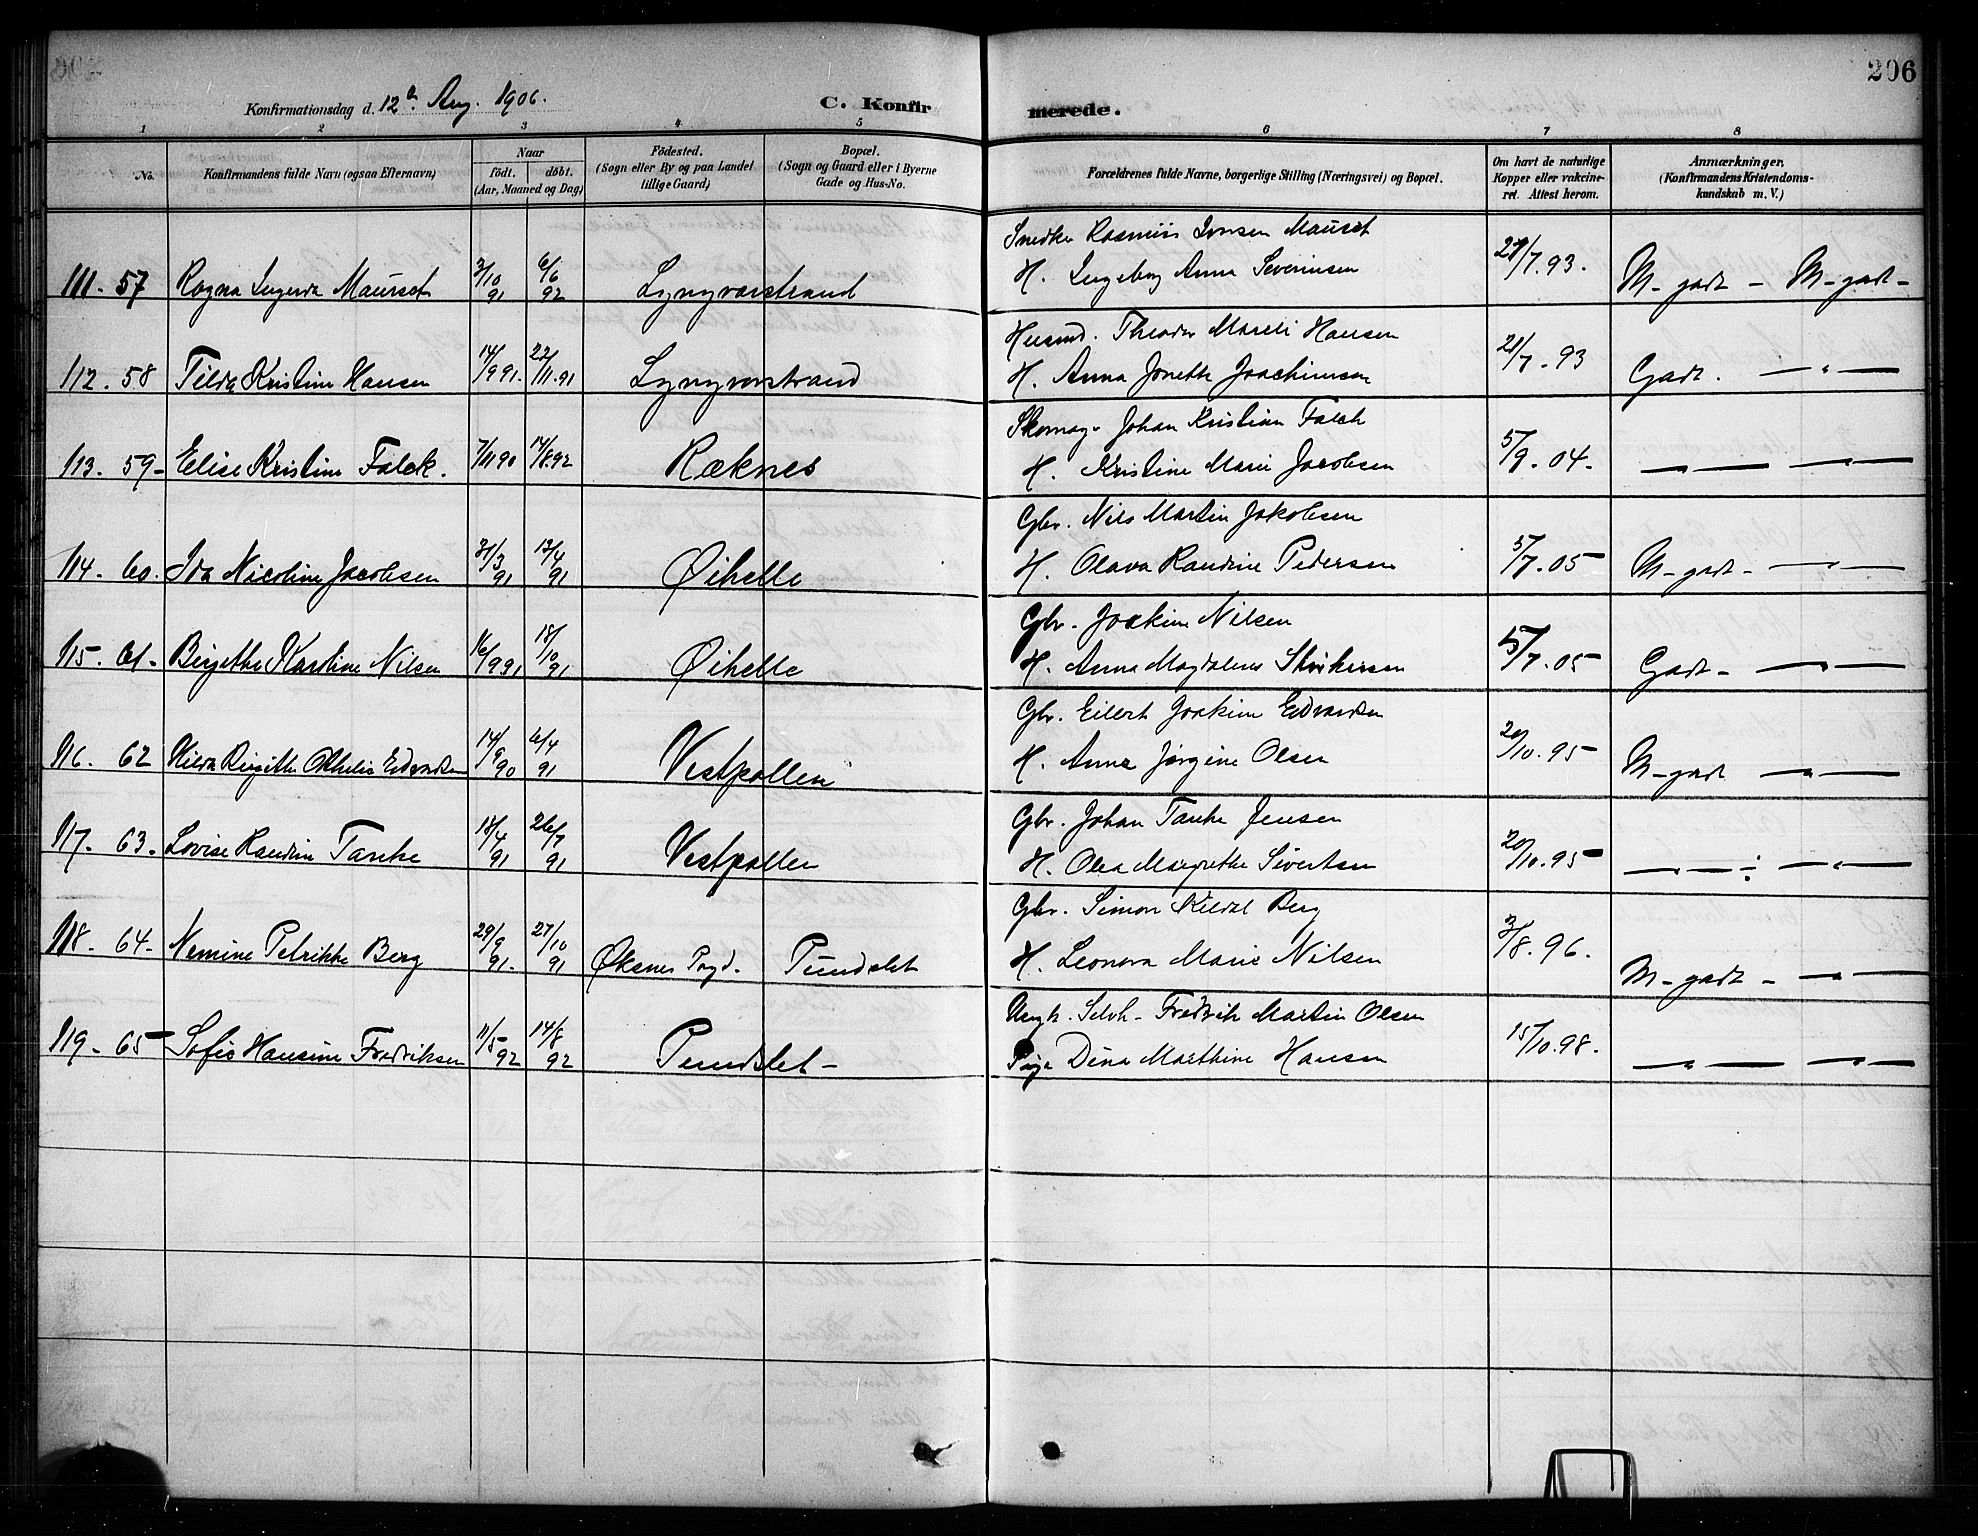 206
Konfirmationsdag d. 12te Aug. 1906.
C. Konfirmerede.
1 2 3 4 5 6 7 8
No.
Konfirmandens fulde Navn (ogsaa Efternavn)
Naar
födt. döbt.
(Aar, Maaned og Dag)
Födested.
(Sogn eller By og paa Landet
tillige Gaard)
Bopæl.
(Sogn og Gaard eller i Byerne
Gade og Hus-No.
Forældrenes fulde Navne, borgerlige Stilling (Næringsvei) og Bopæl.
Om havt de naturlige
Kopper eller vakcine-
ret. Attest herom.
Anmærkninger.
(Konfirmandens Kristendoms-
kundskab m. V.)
Snedker Rasmus Iversen Maurset
111. 57 Ragna Ingerda Maurset 3/10 91 6/6 92 Lyngværstrand H. Ingeborg Anna Severinsen 28/7. 93. M-godt - M-godt -
Husmd. Theodor Mareli Hansen
112. 58 Tilda Kristine Hansen 14/9 91. 22/11. 91 Lyngværstrand H. Anna Jonette Joachimsen 21/7. 93 Godt. — " —
Skomag. Johan Kristian Falch
113. 59 - Elise Kristine Falck. 7/11 90 14/8. 92 Ræknes H. Kristine Marie Jacobsen 5/9. 04. — " — — " —
Gbr. Nils Martin Jakobsen
114. 60. Ida Nicoline Jacobsen 31/3 91 13/4 91 Øihelle H. Olava Randine Pedersen 5/7. 05 M-godt - — " —
Gbr. Joakim Nilsen
115. 61 - Birgitthe Karoline Nilsen 16/9 91 18/10 91 Øihelle H. Anna Magdalene 5/7. 05 Godt - — " —
Gbr. Eilert Joakim Edvardsen
116. 62 Hilda Birgitte Edvardsen 14/9 90 6/4 91 Vestpollen H. Anna Jørgine Olsen 20/10. 95 M-godt — " —
Gbr. Johan Tanke Jensen
117. 63. Lovise Randine Tanke 18/4 91 26/7 91 Vestpollen H. Olea Margrethe Sivertsen 20/10. 95 — " — ÷ — " —
Gbr. Simon Kildal Berg
118. 64 - Nemine Petrikke Berg 29/9 91. 27/10 91 Øksnes Pgd. Pundslet H. Leonora Marie Nilsen 3/8. 96. M-godt - — " —
Ungk. Selvh. Fredrik Martin Olsen
119. 65 Sofie Hansine Fredriksen 11/5 92 14/8 92 Pundslet - Pige Dina Marthine Hansen 15/10. 98. — " — — " —